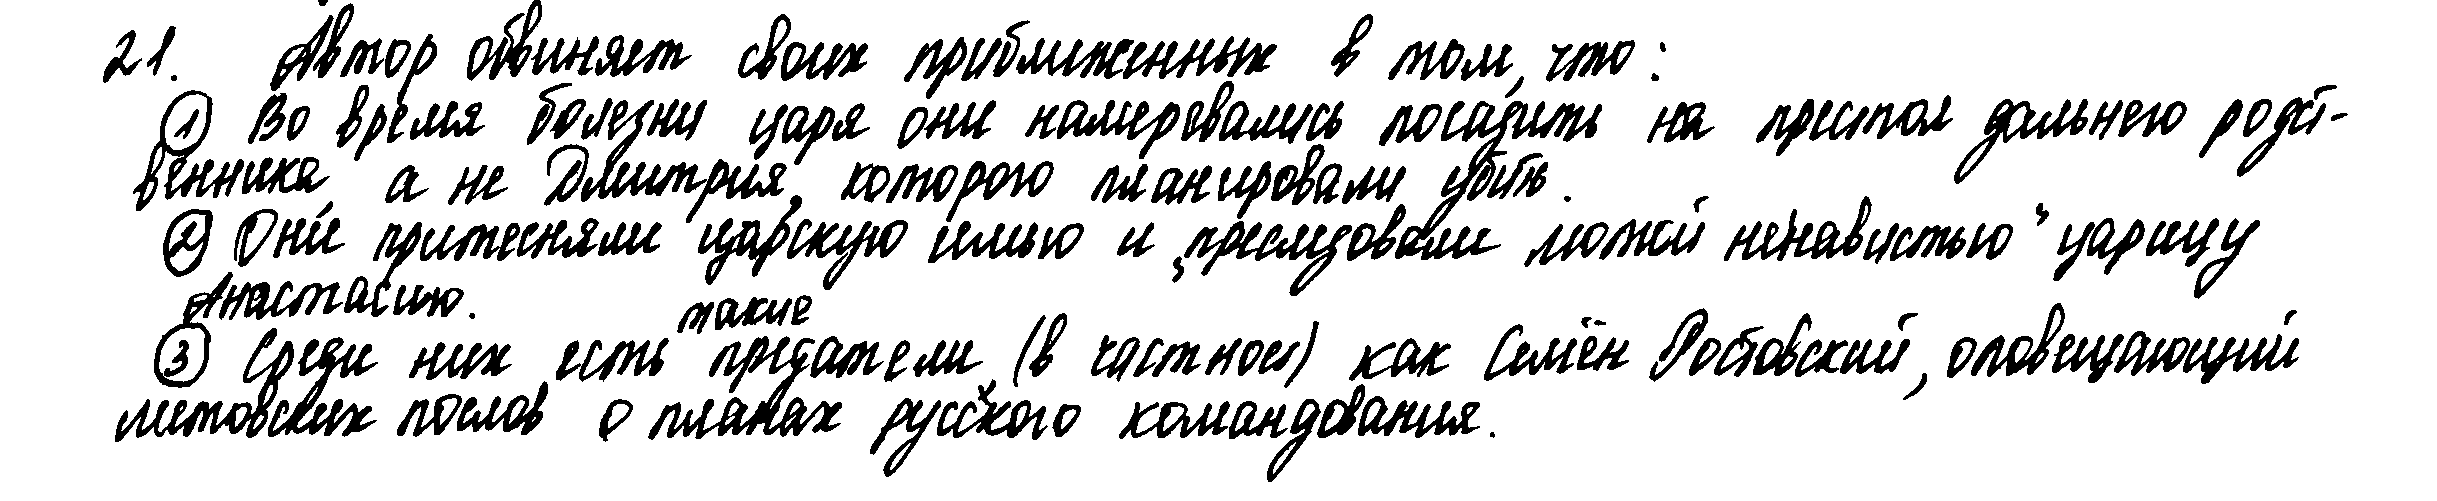 21. Автор обвиняет своих приближенных в том, что:
① Во время болезни царя они намеревались посадить на престол дальнего родст-
венника, а не Дмитрия, которого планировали убить.
② Они притесняли царскую семью и „преследовали лютой ненавистью" царицу
Анастасию.
такие
③ Среди них есть предатели (в частност) как Семён Ростовский, оповещающий
литовских послов о планах русского командования.